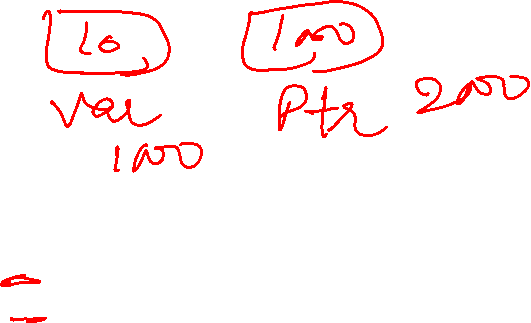 10 1000
Var Ptr 2000
1000